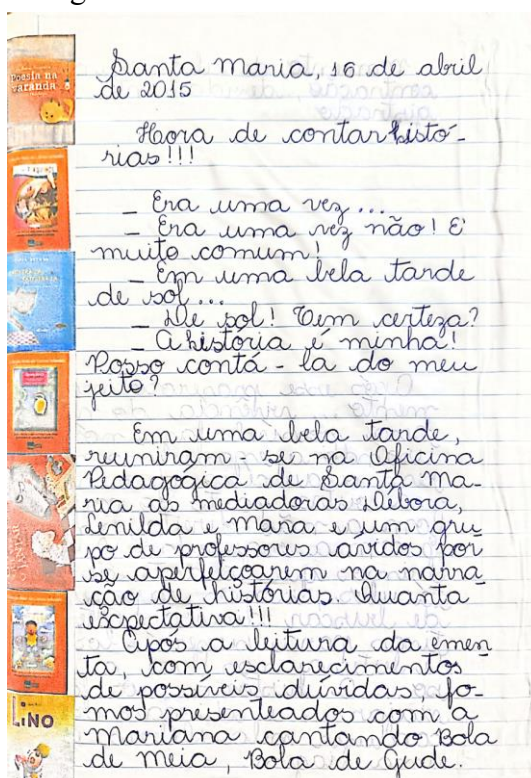 Poesia na
varanda
Santa Maria, 16 de abril
de 2015
Hora de contar histó-
rias!!!
_ Era uma vez ...
_ Era uma vez não! É
muito comum!
_ Em uma bela tarde
de sol ...
_ De sol! Tem certeza?
_ A história é minha!
Posso contá-la do meu
jeito?
Em uma bela tarde,
reuniram-se na Oficina
Pedagógica de Santa Ma-
ria as mediadoras Débora,
Lenilda e Maria e um gru
po de professores ávidos por
se aperfeiçoarem na narra
ção de histórias. Quanta
expectativa!!!
Após a leitura da emen
ta, com esclarecimentos
de possíveis dúvidas, fo-
mos presenteados com a
LINO
Mariana cantando Bola
de meia, Bola de Gude.